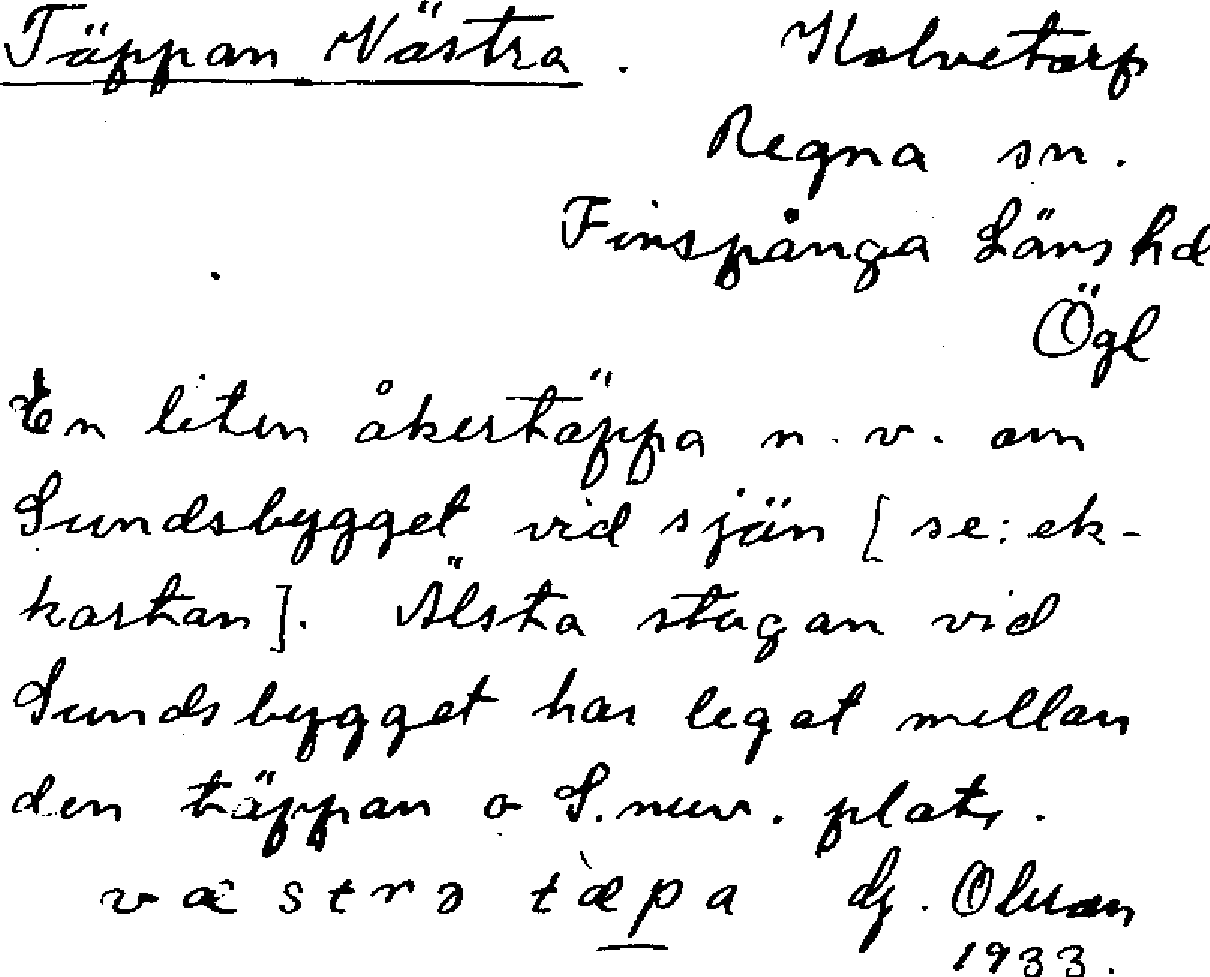 Täppan Västra. Kolvetorp
Regna sn.
Finspånga Läns hd
Ögl
En liten åkertäppa n.v. om
Sundsbygget vid sjön [se: ek-
kartan]. Älsta stugan vid
Sundsbygget har legat mellan
den täppan o S. nuv. plats.
væstrə tæ̀pa G. Olsson
1933.